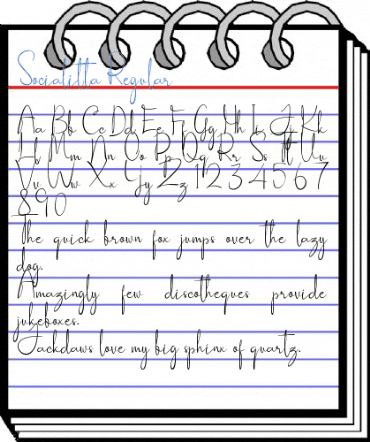 Socialitta Regular
Aa Bb Cc Dd Ee Ff Gg Hh Ii Jj Kk
Ll Mm Nn Oo Pp Qq Rr Ss Tt Uu
Vv Ww Xx Yy Zz 1 2 3 4 5 6 7
8 9 0
The quick brown fox jumps over the lazy
dog.
Amazingly few discotheques provide
jukeboxes.
Jackdaws love my big sphinx of quartz.